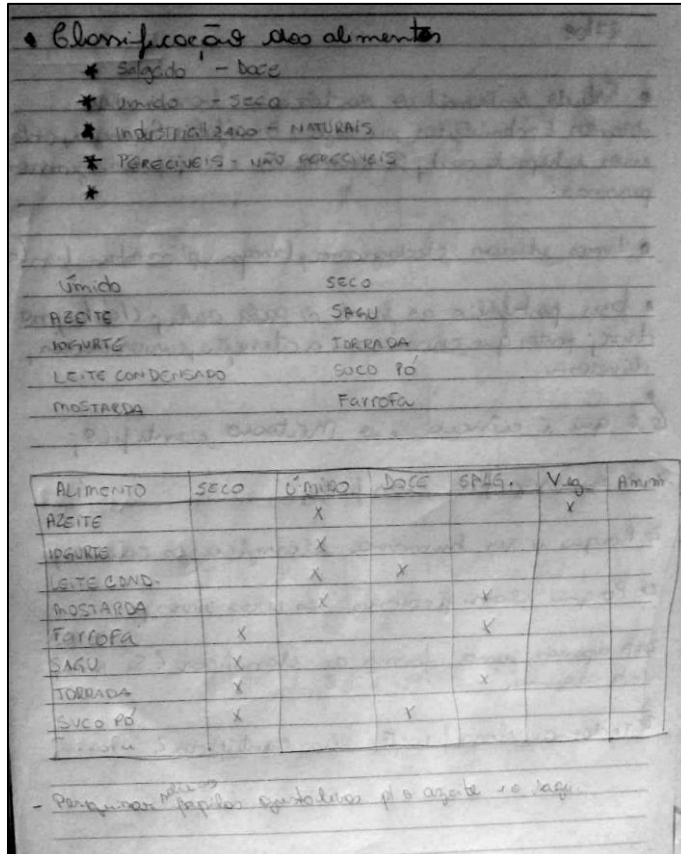 • Classificação dos alimentos
* Salgado - Doce
* úmido - seco
* industrializado - NATURAIS
* PERECÍVEIS - NÃO PERECÍVEIS
*
Úmido SECO
AZEITE SAGU
IOGURTE TORRADA
LEITE CONDENSADO SUCO PÓ
MOSTARDA Farrofa
ALIMENTO SECO ÚMIDO DOCE SALG. Veg. Anim.
AZEITE X X
IOGURTE X
LEITE COND. X X
MOSTARDA X X
Farrofa X X
SAGU X
TORRADA X X
SUCO PÓ X X
- Pesquisar sobre as papilas gustativas p/ o azeite e o sagu.